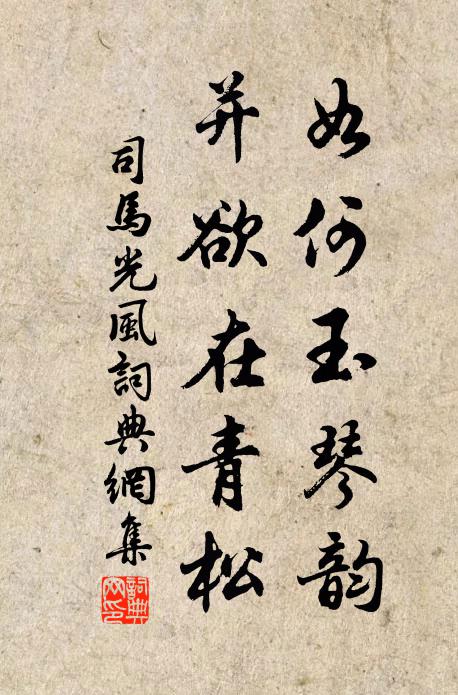 如何玉琴韵
并欲在青松
司馬光風詞典網集
詞典网印